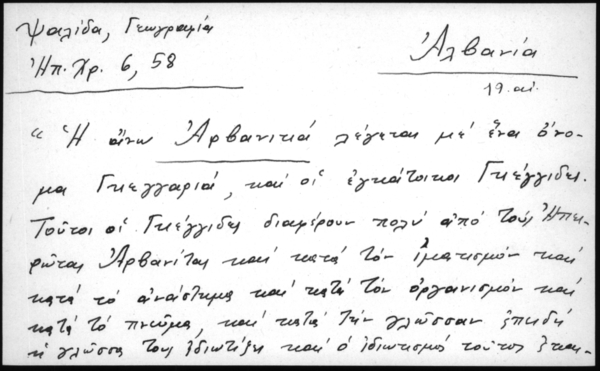 Ψαλίδα, Γεωγραφία
Ἠπ. Χρ. 6, 58
Ἀλβανία
19. αἰ.
" Ἡ ἄνω Ἀρβανιτιά λέγεται μέ ἕνα ὄνο-
μα Γκεγγαριά, καί οἱ ἐγκάτοικοι Γκέγγιδες.
Τοῦτοι οἱ Γκέγγιδες διαφέρουν πολύ ἀπό τούς Ἠπει-
ρώτας Ἀρβανίτας καί κατά τόν ἱματισμόν καί
κατά τό ἀνάστημα καί κατά τόν ὀργανισμόν καί
κατά τό πνεῦμα, καί κατά τήν γλῶσσαν ἐπειδή
ἡ γλῶσσα τους καί ὁ ἰδιωτισμός τούτος